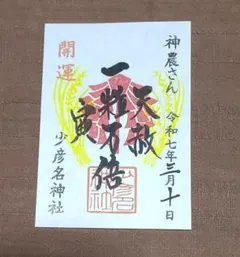 神農さん
令和七年三月十日
天赦
一粒万倍
寅
開運
少彦名神社